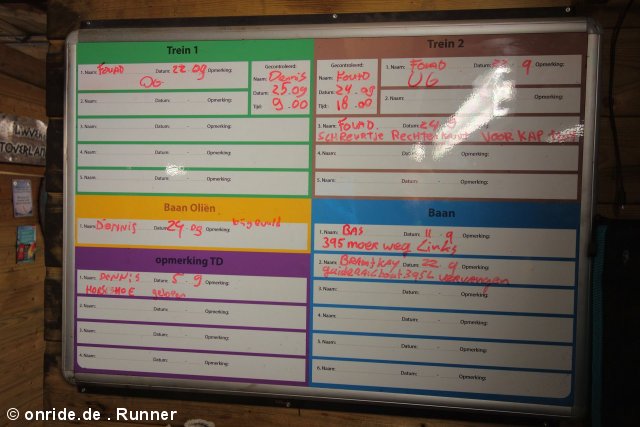 Trein 1
1. Naam: FOUAD Datum: 22-09 Opmerking:
OG
2. Naam: Datum: - Opmerking:
3. Naam: Datum: - Opmerking:
4. Naam: Datum: - Opmerking:
5. Naam: Datum: - Opmerking:
Gecontroleerd:
Naam: Dennis
Datum: 25.09
Tijd: 9.00
Trein 2
Gecontroleerd:
Naam: FOUAD
Datum: 24.09
Tijd: 18.00
1. Naam: FOUAD Datum: 9 Opmerking:
UG
2. Naam: Datum: - Opmerking:
3. Naam: FOUAD Datum: Opmerking:
SCHEURTJE Rechter VOOR KAP
4. Naam: Datum: - Opmerking:
5. Naam: Datum: - Opmerking:
Baan Oliën
1. Naam: DENNIS Datum: 24-09 Opmerking: bijgevuld
opmerking TD
1. Naam: DENNIS Datum: 5-9 Opmerking:
HORSESHOE
2. Naam: Datum: - Opmerking:
3. Naam: Datum: - Opmerking:
4. Naam: Datum: - Opmerking:
Baan
1. Naam: BAS Datum: 11-9 Opmerking:
395 moer weg Links
2. Naam: BRAM+KAY Datum: 22-9 Opmerking:
guiderail bout 395L vervangen
3. Naam: Datum: - Opmerking:
4. Naam: Datum: - Opmerking:
5. Naam: Datum: - Opmerking:
6. Naam: Datum: - Opmerking:
TOVERLAN
© onride.de . Runner